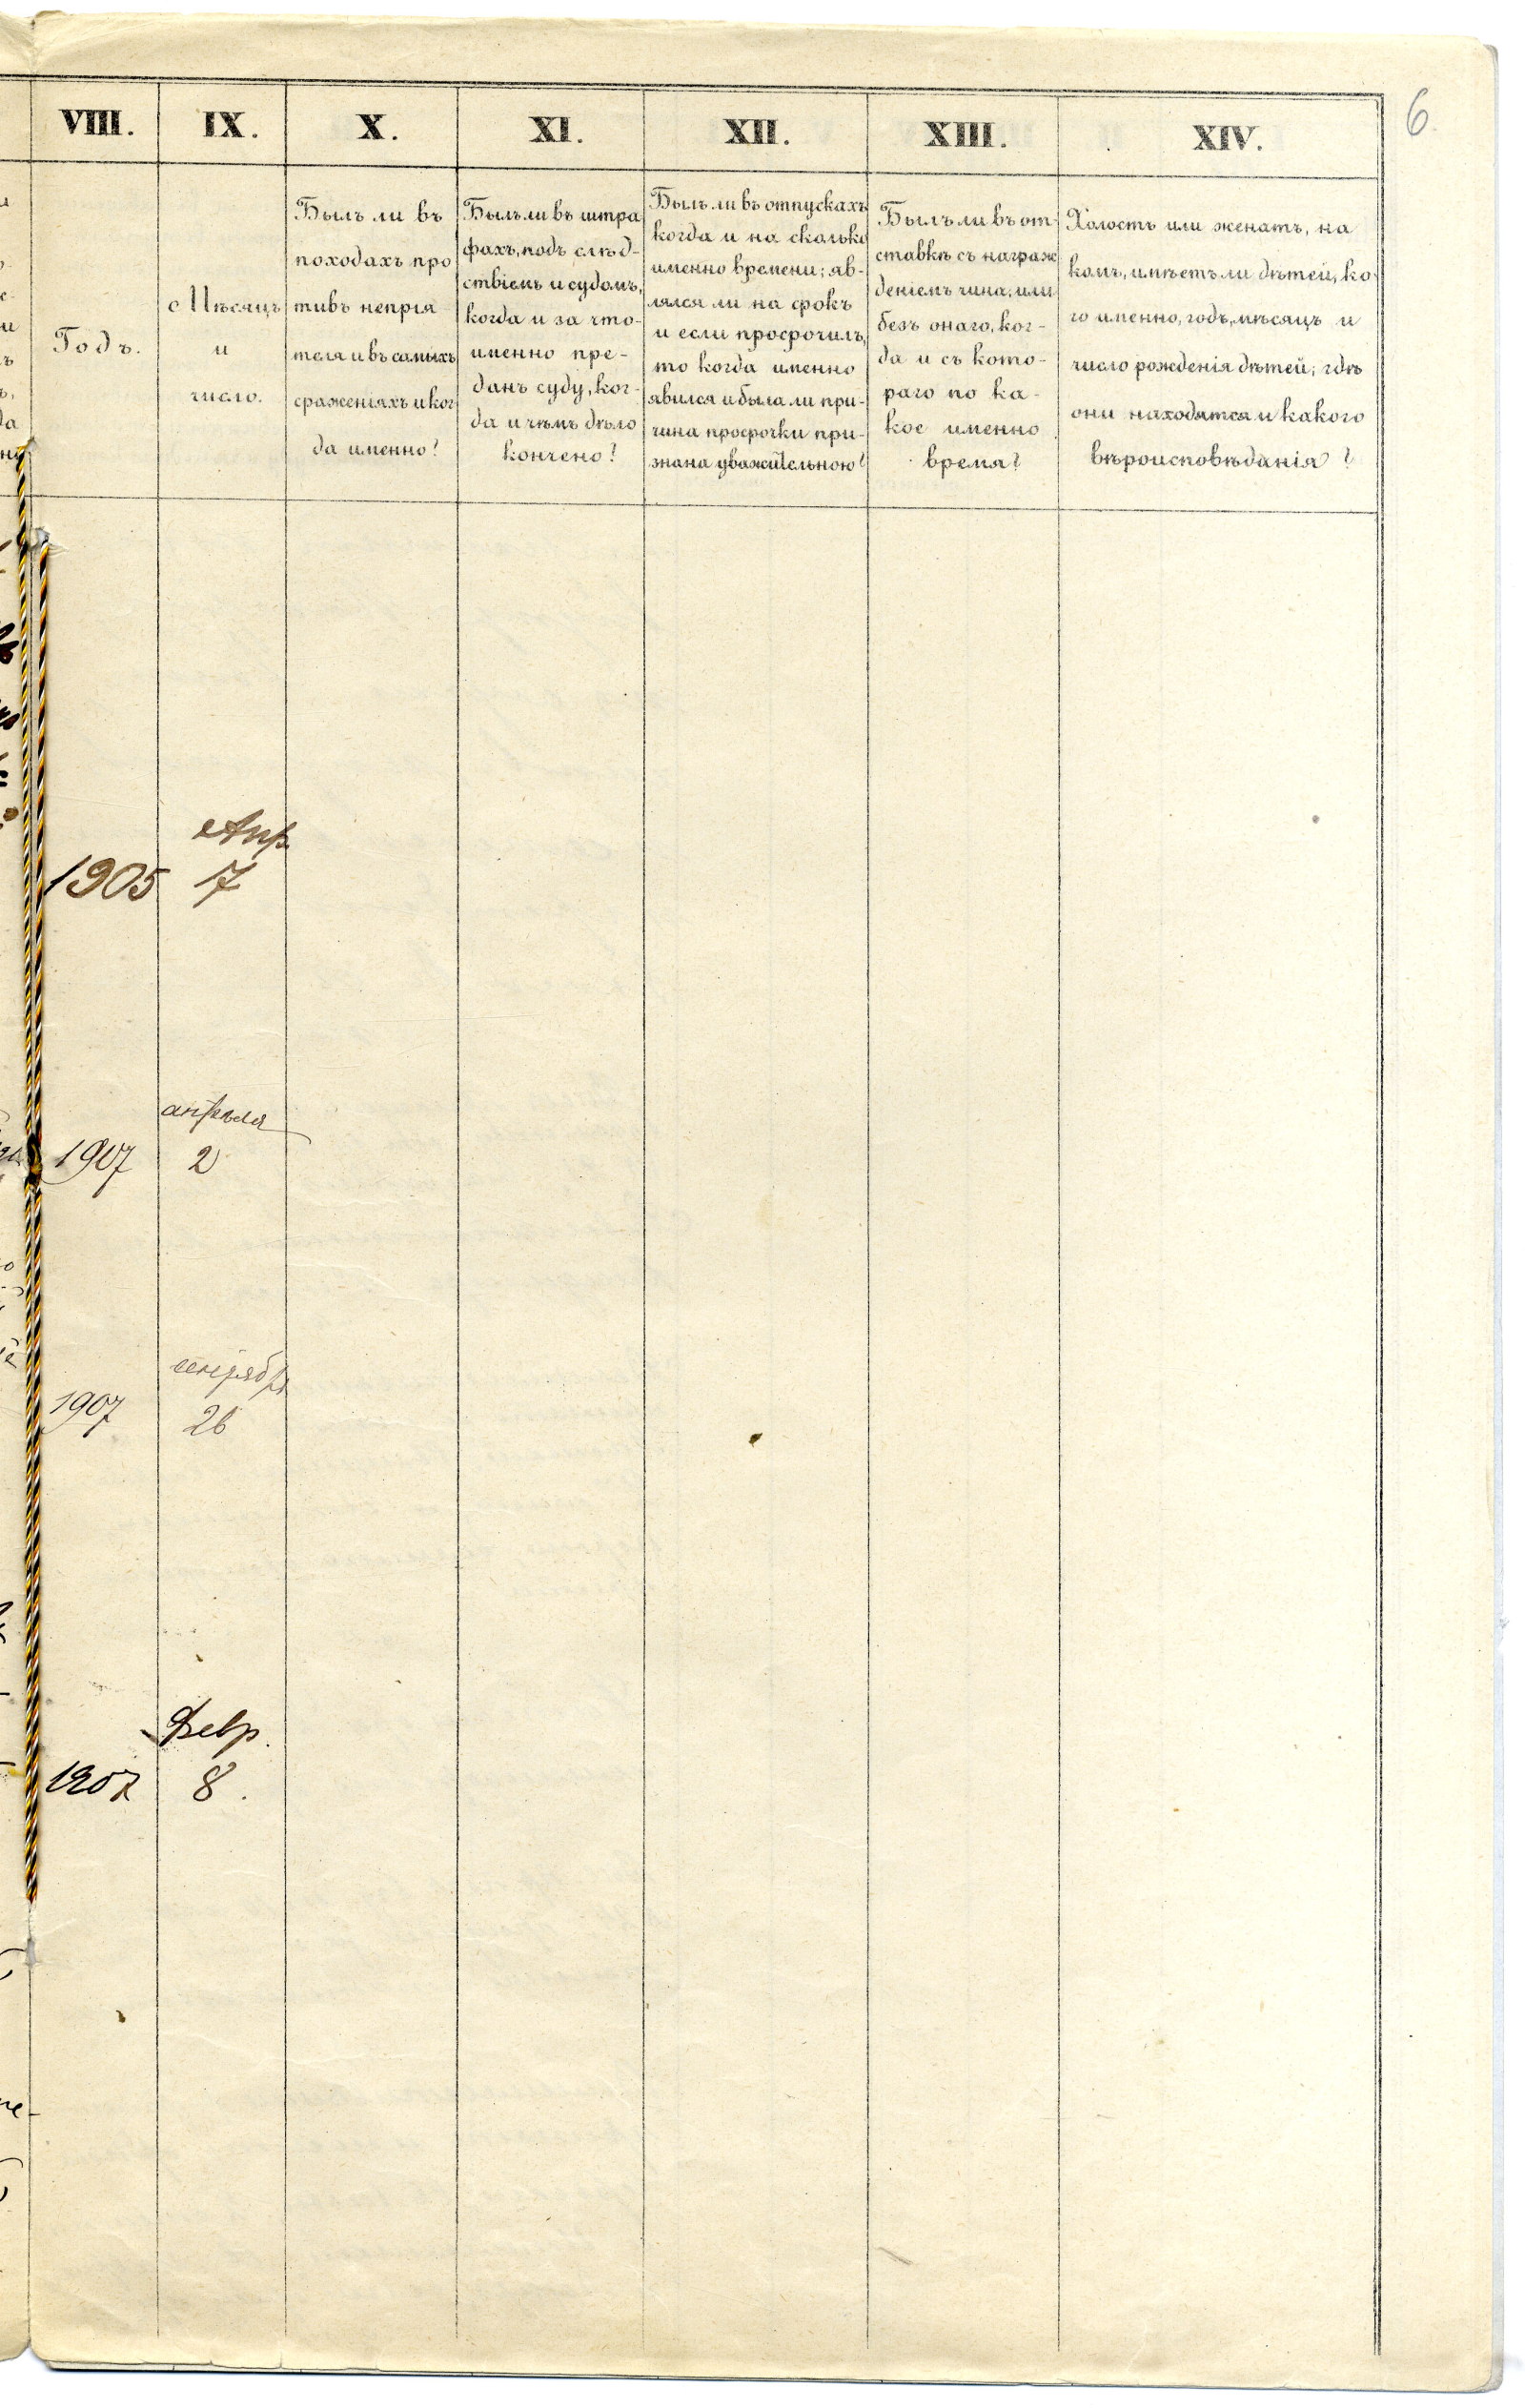 6.
VIII. IX. X. XI. XII. XIII. XIV.
Годъ.
Мѣсяцъ
и
число.
Былъ ли въ
походахъ про
тивъ непрія
теля и въ самыхъ
сраженіяхъ и ког
да именно?
Былъ ли въ штра
фахъ, подъ слѣд-
ствіемъ и судомъ,
когда и за что-
именно пре-
данъ суду, ког-
да и чѣмъ дѣло
кончено?
Былъ ли въ отпускахъ
когда и на сколько
именно времени; яв-
лялся ли на срокъ
и если просрочилъ,
то когда именно
явился и была ли при-
чина просрочки при-
знана уважительною?
Былъ ли въ от-
ставкѣ съ награж
деніемъ чина, или
безъ онаго, ког-
да и съ кото-
раго по ка-
кое именно
время?
Холостъ или женатъ, на
комъ, имѣетъ ли дѣтей, ко-
го именно, годъ, мѣсяцъ и
число рожденія дѣтей; гдѣ
они находятся и какого
вѣроисповѣданія?
Апр.
1905 7
апрѣля
1907 2
сентября
1907 26
Февр.
1907 8.